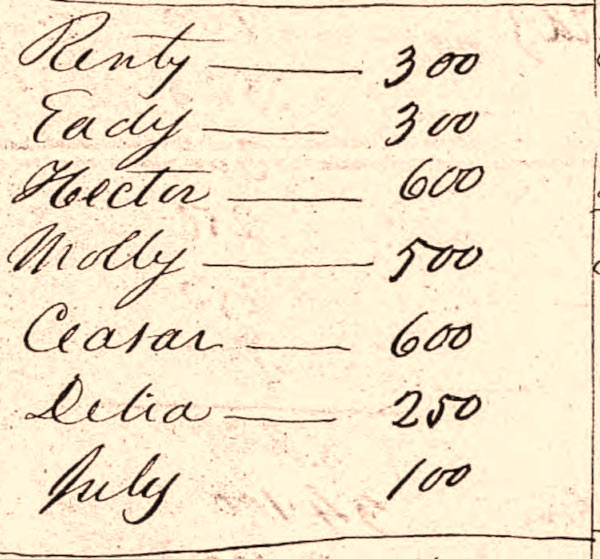 Renty — 300
Eady — 300
Hector — 600
Molly — 500
Ceasar — 600
Delia — 250
July 100